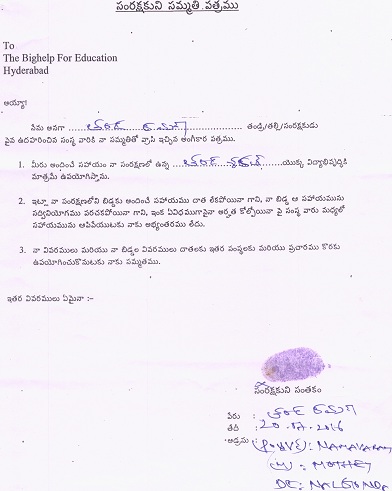 సంరక్షకుని సమ్మతి పత్రము
To
The Bighelp For Education
Hyderabad
అయ్యా!
నేను అనగా ........................ తండ్రి/తల్లి/సంరక్షకుడు
పైన ఉదహరించిన సంస్థ వారికి నా సమ్మతితో వ్రాసి ఇచ్చిన అంగీకార పత్రము.
1. మీరు అందించే సహాయం నా సంరక్షణలో ఉన్న ........................యొక్క విద్యాభివృద్ధికి
మాత్రమే ఉపయోగిస్తాను.
2. ఇట్లూ నా సంరక్షణలోని బిడ్డకు అందించే సహాయము దాత లేకపోయినా గాని, నా బిడ్డ ఆ సహాయమును
సద్వినియోగము పరచకపోయినా గాని, ఇంక ఏవిధముగానైనా అర్హత కోల్పోయినా పై సంస్థ వారు మధ్యలో
సహాయమును ఆపివేయుటకు నాకు అభ్యంతరము లేదు.
3. నా వివరములు మరియు నా బిడ్డల వివరములు దాతలకు ఇతర సంస్థలకు మరియు ప్రచారము కొరకు
ఉపయోగించుకొనుటకు నాకు సమ్మతము.
ఇతర వివరములు ఏమైనా :-
సంరక్షకుని సంతకం
పేరు :
తేదీ : 20.07.2016
అడ్రసు : NAMAVARAM
(M): MOTHEY
DT: NALGONDA